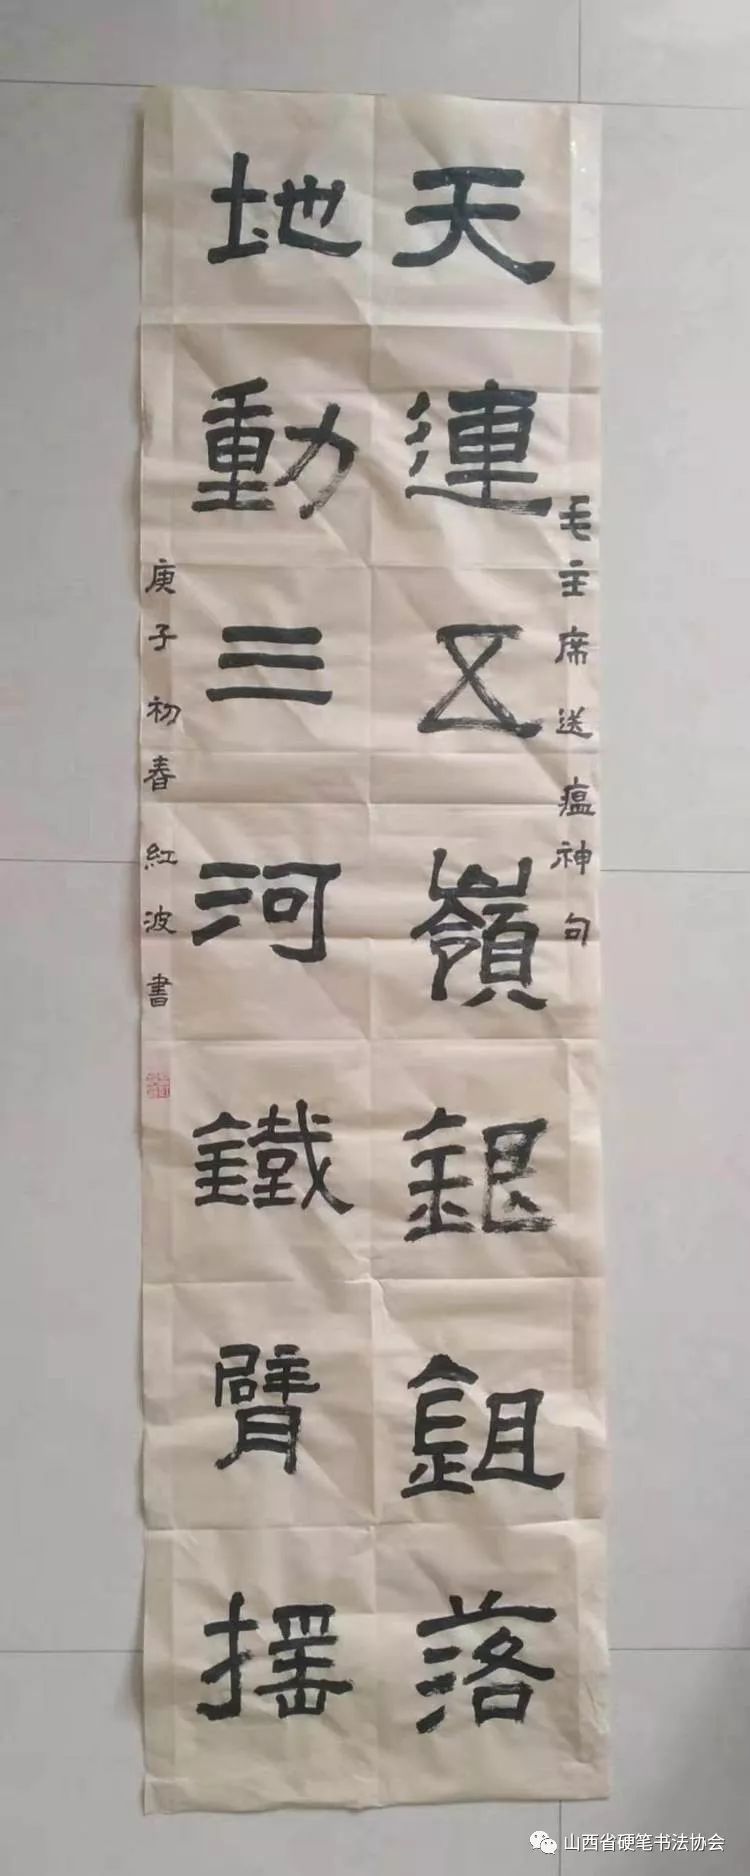 毛主席送瘟神句
天連五嶺銀鉏落
地動三河鐵臂摇
庚子初春紅波書
山西省硬笔书法协会